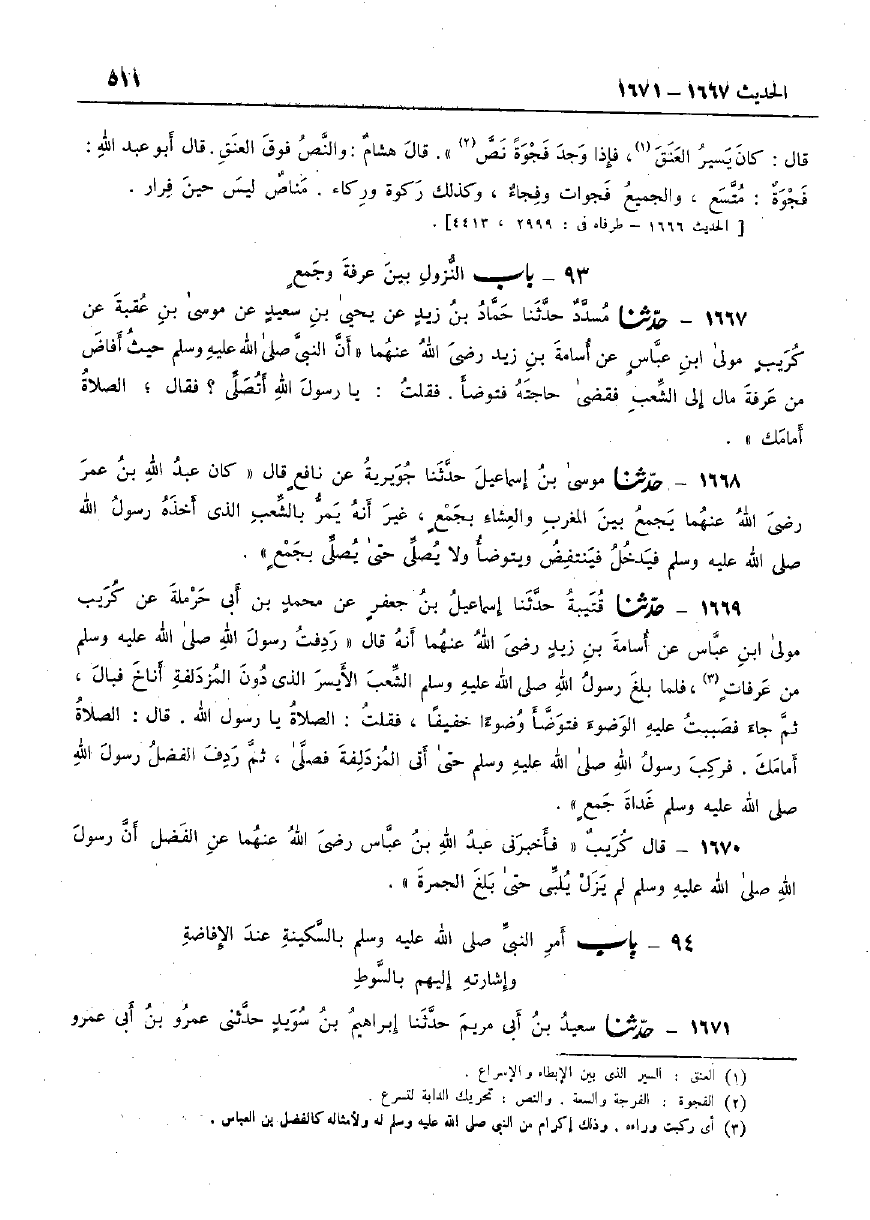 الحديث ١٦٦٧ – ١٦٧١
٥١١
قال : كانَ يَسيرُ العَنَقَ (١)، فإذا وَجدَ فَجْوَةً نَصَّ (٢) » . قالَ هشامٌ : والنَّصُ فوقَ العنَقِ . قال أبو عبد اللهِ :
فَجْوَةٌ : مُتَّسَع ، والجميعُ فَجوات وفِجاءٌ ، وكذلك رَكوة وركاء . مَناصٌ ليسَ حينَ فِرار .
[ الحديث ١٦٦٦ – طرفاه فى : ٢٩٩٩ ، ٤٤١٣] .
٩٣ – باب النُّزولِ بينَ عرفةَ وجَمعٍ
١٦٦٧ – حدّثنا مُسدَّدٌ حدَّثَنا حَمَّادُ بنُ زيدٍ عن يحيىٰ بنِ سعيدٍ عن موسىٰ بنِ عُقبةَ عن
كُرَيبٍ مولىٰ ابنِ عبَّاسٍ عن أُسامةَ بنِ زيد رضىَ اللهُ عنهُما « أنَّ النبىَّ صلىٰ الله عليهِ وسلم حيثُ أفاضَ
من عَرفةَ مال إلى الشِّعبِ فقضىٰ حاجتَهُ فتوضأ . فقلتُ : يا رسولَ اللهِ أَتُصَلِّى ؟ فقال ؛ الصلاةُ
أمامَك » .
١٦٦٨ – حدّثنا موسىٰ بنُ إسماعيلَ حدَّثَنا جُوَيريةُ عن نافعٍ قال « كان عبدُ اللهِ بنُ عمرَ
رضىَ اللهُ عنهُما يَجمعُ بينَ المغربِ والعِشاءِ بجَمْعٍ ، غيرَ أنهُ يَمرُّ بالشِّعبِ الذى أخذَهُ رسولُ الله
صلى الله عليه وسلم فيَدخُلُ فيَنتفِضُ ويتوضأُ ولا يُصلِّى حتىٰ يُصلِّى بجَمْعٍ » .
١٦٦٩ – حدّثنا قُتَيبةُ حدَّثَنا إسماعيلُ بنُ جعفرٍ عن محمدٍ بن أبى حَرْملةَ عن كُرَيب
مولىٰ ابنِ عبَّاس عن أُسامةَ بنِ زيدٍ رضىَ اللهُ عنهُما أنهُ قال « رَدِفتُ رسولَ اللهِ صلىٰ اللهُ عليه وسلم
من عَرفاتٍ (٣)، فلما بلغَ رسولُ اللهِ صلى الله عليهِ وسلم الشِّعبَ الأيسرَ الذى دُونَ المُزدَلفةِ أَناخَ فبالَ ،
ثمَّ جاءَ فصَببتُ عليهِ الوَضوءَ فتوَضَّأَ وُضوءًا خفيفًا ، فقلتُ : الصلاةُ يا رسول الله . قال : الصلاةُ
أمامَكَ . فركِبَ رسولُ اللهِ صلىٰ الله عليهِ وسلم حتىٰ أتى المُزدَلِفةَ فصلَّىٰ ، ثمَّ رَدِفَ الفضلُ رسولَ اللهِ
صلى الله عليه وسلم غَداةَ جَمعٍ » .
١٦٧٠ – قال كُرَيبٌ « فـأخبرَنى عبدُ اللهِ بنُ عبَّاس رضىَ اللهُ عنهُما عنِ الفَضل أنَّ رسولَ
اللهِ صلىٰ الله عليهِ وسلم لم يَزَلْ يُلبِّى حتىٰ بَلغَ الجمرةَ » .
٩٤ – باب أمرِ النبىِّ صلى الله عليه وسلم بالسَّكينةِ عندَ الإفاضةِ
وإشارتهِ إليهم بالسَّوطِ
١٦٧١ – حدّثنا سعيدُ بنُ أبى مريمَ حدَّثَنا إبراهيمُ بنُ سُوَيدٍ حدَّثنى عمرُو بنُ أبى عمرو
(١) العنق : السير الذى بين الإبطاء والإسراع .
(٢) الفجوة : الفرجة والسعة . والنص : تحريك الدابة لتسرع .
(٣) أى ركبت وراءه . وذلك إكرام من النبي صلى الله عليه وسلم له ولأمثاله كالفضل بن العباس .